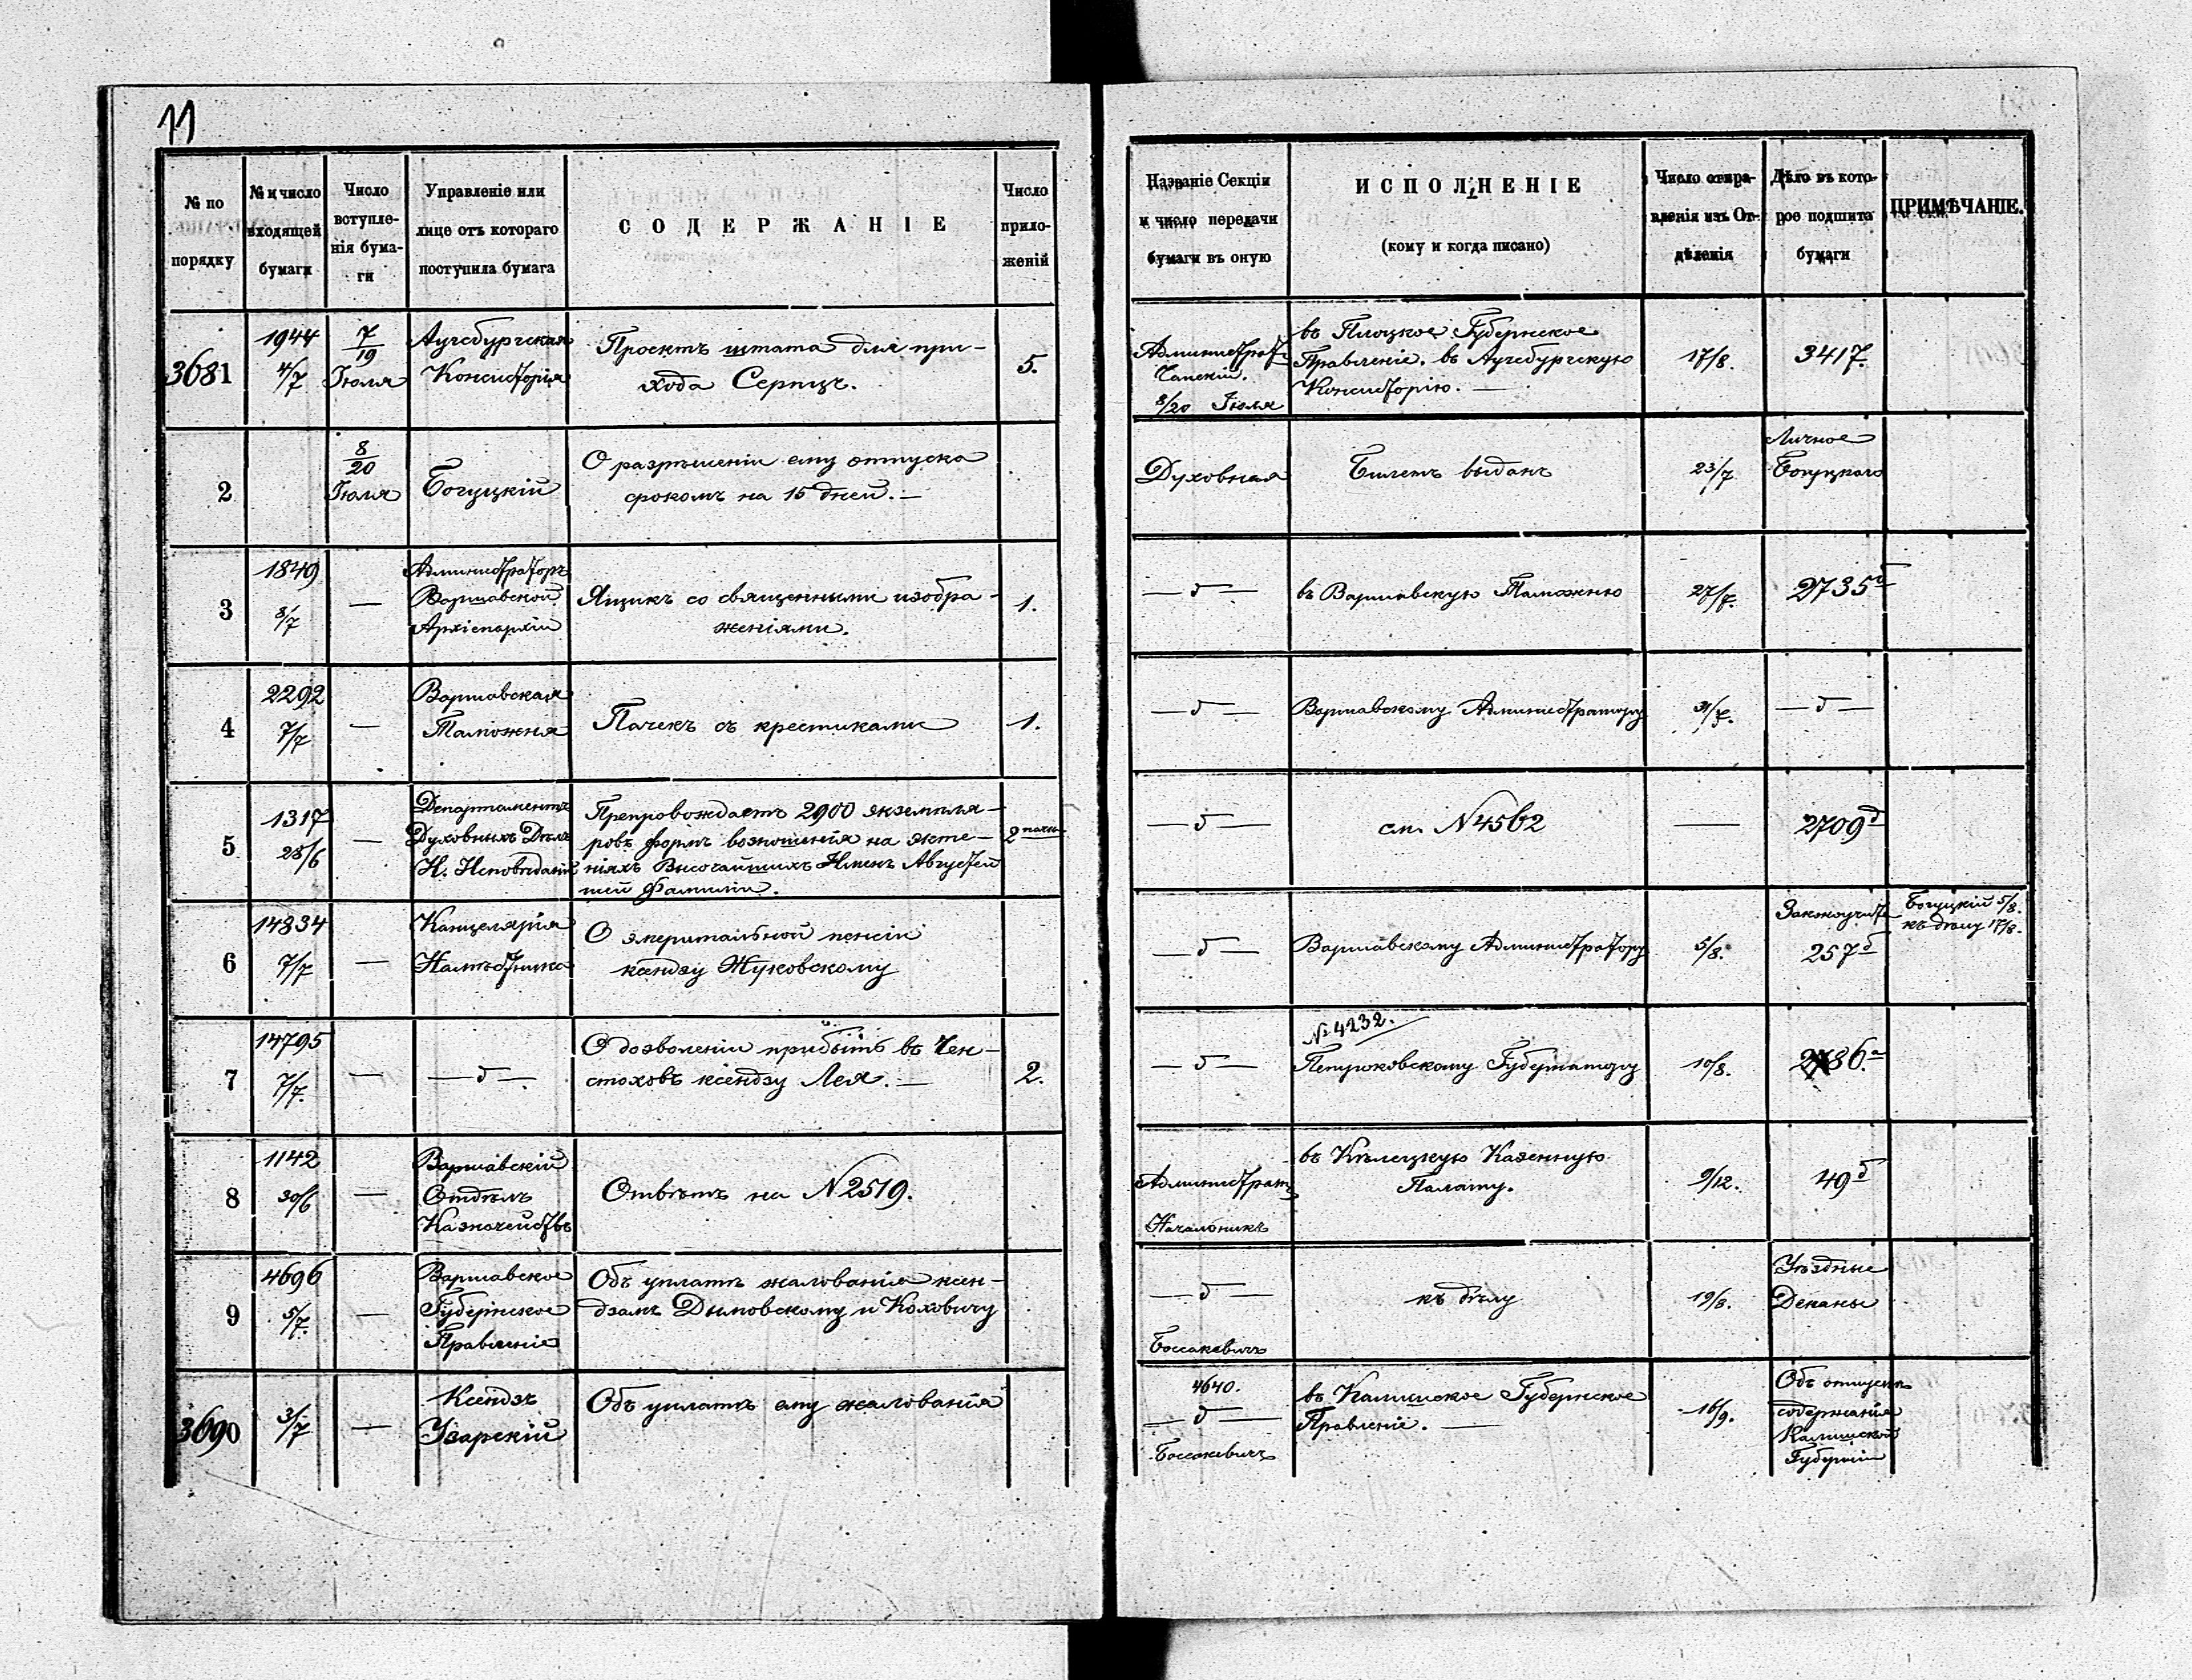 11
№ по порядку
№ и число входящей бумаги
Число вступленія бумаги
Управленіе или лице отъ котораго поступила бумага
СОДЕРЖАНІЕ
Число приложеній
Названіе Секціи и число передачи бумаги въ оную
ИСПОЛНЕНІЕ
(кому и когда писано)
Число отправленія изъ Отдѣленія
Дѣло въ которое подшита бумаги
ПРИМѢЧАНІЕ.
3681
1944
4/7
7/19 Іюля
Аугсбургская
Консисторія
Проектъ штата для при-
хода Серпцъ.
5.
Администрат.
8/20 Іюля
въ Плоцкое Губернское
Правленіе, въ Аугсбургскую
Консисторію.
17/8.
3417.
2
8/20 Іюля
Богуцкій
О разрѣшеніи ему отпуска
срокомъ на 15 дней.
Духовная
Билетъ выданъ
23/7
Личное
Богуцкаго
3
1849
8/7
—
Администраторъ
Варшавской
Архіепархіи
Ящикъ со священными изобра-
женіями.
1.
— д —
въ Варшавскую Таможню
27/7.
2735
4
2292
7/7
—
Варшавская
Таможня
Пачекъ съ крестиками
1.
— д —
Варшавскому Администратору
31/7.
— д —
5
1317
28/6
—
Департаментъ
Духовныхъ Дѣлъ
И. Исповѣданій
Препровождаетъ 2900 экземпля-
ровъ формъ возношенія на экте-
ніяхъ Высочайшихъ Именъ Августей
шей Фамиліи.
2
— д —
см. N 4562
—
2709
6
14834
7/7
—
Канцелярія
Намѣстника
О эмеритальной пенсіи
ксендзу Жуковскому
— д —
Варшавскому Администратору
5/8.
257
Богуцкій 5/8.
къ дѣлу 17/8.
7
14795
7/7.
—
— д —.
О дозволеніи прибыть въ Чен-
стоховъ ксендзу Лея.
2.
— д —
№ 4232.
Петроковскому Губернатору
10/8.
8
1142
30/6
—
Варшавскій
Отдѣлъ
Казначействъ
Отвѣтъ на N 2519.
Администрат.
Начальникъ
въ Кѣлецкую Казенную
Палату.
9/12.
49
9
4696
5/7.
—
Варшавское
Губернское
Правленіе
Объ уплатѣ жалованія ксен-
дзамъ Дымовскому и Коховичу
— д —
Боссакевичъ
къ дѣлу
19/8.
Уѣздные
Деканы
3690
3/7
—
Ксендзъ
Узарскій
Объ уплатѣ ему жалованія
4640.
— д —
Боссакевичъ
въ Калишское Губернское
Правленіе.
16/9.
Объ отпускѣ
содержанія
Калишской
Губерніи